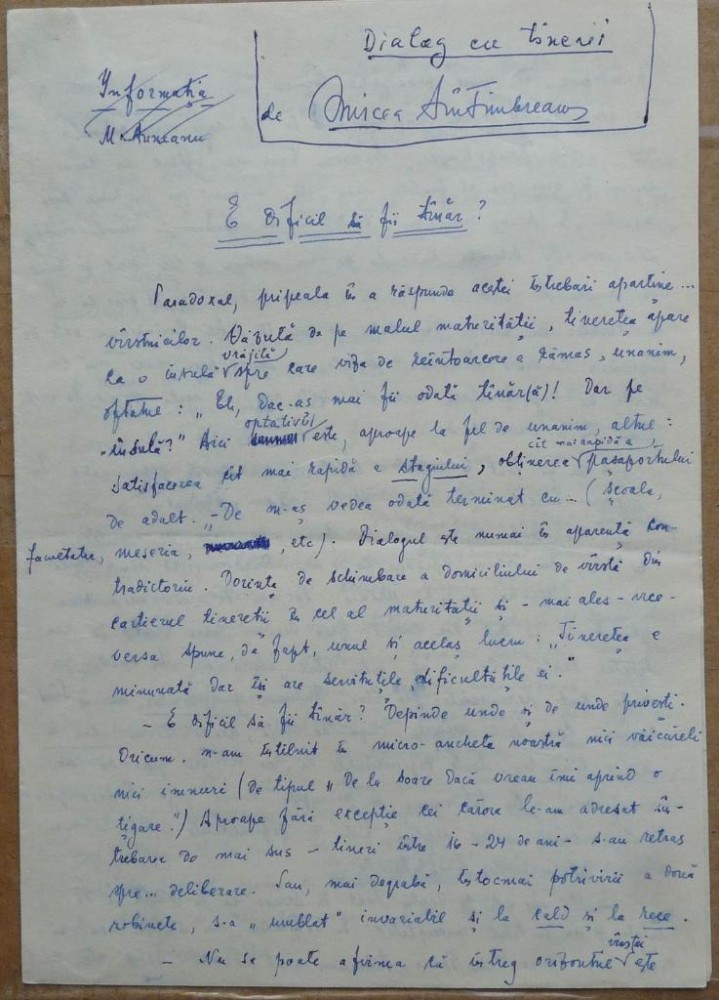 Dialog cu tinerii
Informația
de Mircea Sîntimbreanu
M.
E dificil să fii tînăr?
Paradoxal, pripeala în a răspunde acestei întrebări aparține...
vîrstnicilor. Văzută de pe malul maturității, tinerețea apare
ca o insulă vrăjită spre care viza de reîntoarcere a rămas, unanim,
optativul: „Eh, dac-aș mai fi odată tînăr(ă)! Dar pe
„insulă?" Aici optativul este, aproape la fel de unanim, altul:
satisfacerea cît mai rapidă a stagiului, obținerea cît mai rapidă a pașaportului
de adult. „De m-aș vedea odată terminat cu... (școala,
facultatea, meseria, etc). Dialogul este numai în aparență con-
tradictoriu. Dorința de schimbare a domiciliului de vîrstă din
cartierul tinereții în cel al maturității și - mai ales - vice-
versa spune, de fapt, unul și același lucru: „Tinerețea e
minunată dar își are servituțile, dificultățile ei."
- E dificil să fii tînăr? Depinde unde și de unde privești.
Oricum, n-am întîlnit în micro-ancheta noastră nici văicăreli
nici imnuri (de tipul „De la soare dacă vreau îmi aprind o
țigare.") Aproape fără excepție cei cărora le-am adresat în-
trebarea de mai sus - tineri între 16 - 24 de ani - s-au retras
spre... deliberare. Sau, mai degrabă, întocmai potrivirii a două
robinete, s-a „umblat" invariabil și la cald și la rece.
- Nu se poate afirma că întreg orizontul vîrstei este